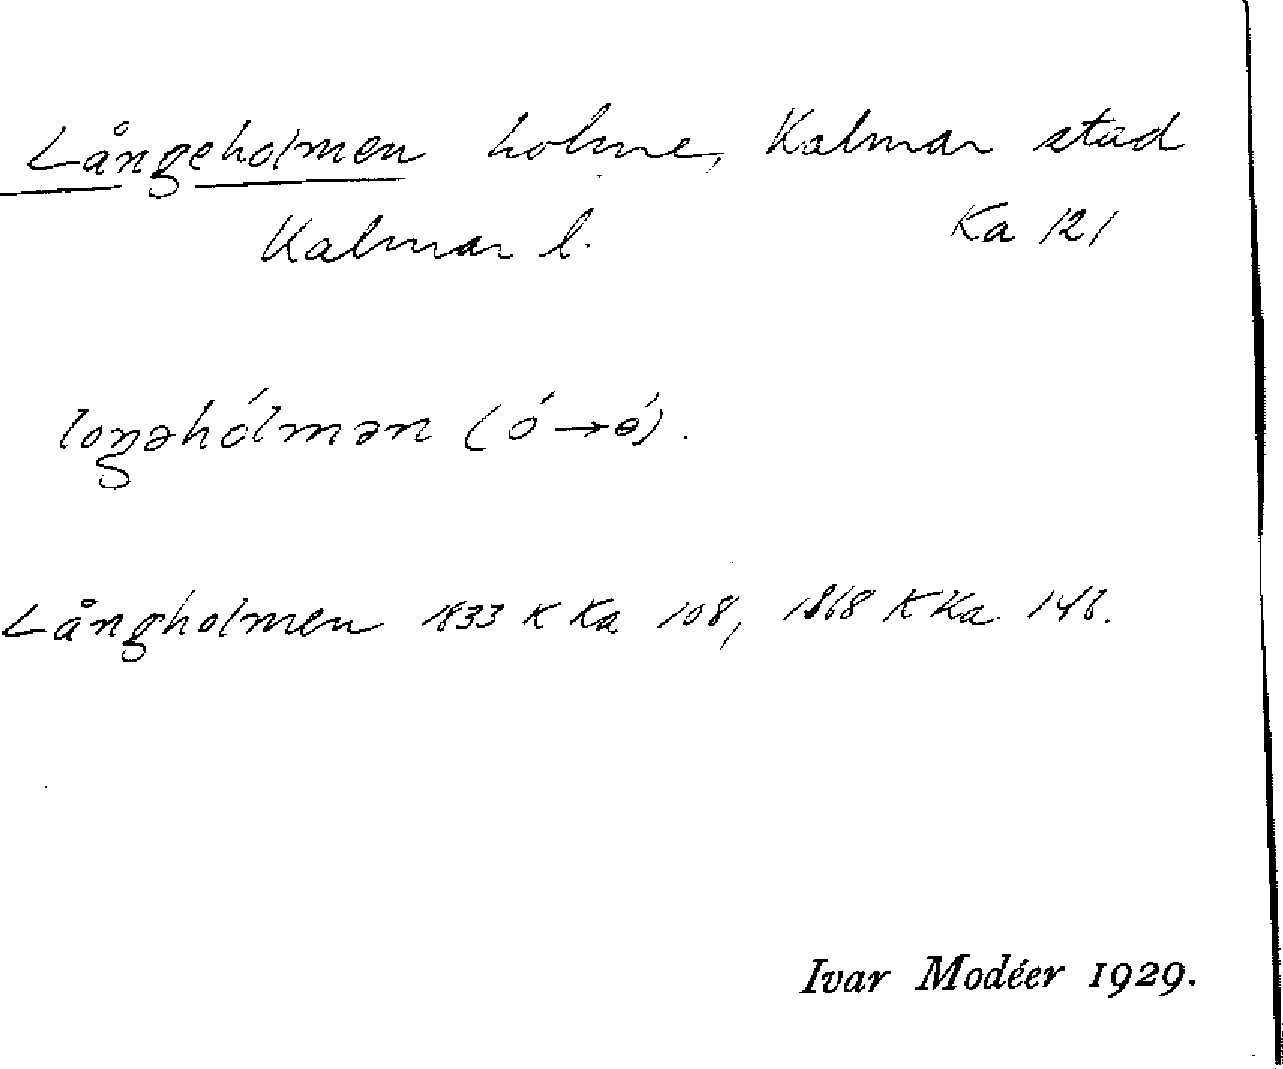 Långeholmen holme, Kalmar stad
Kalmar l. Ka 121
loŋəhólmən (ó→ɵ́).
Långholmen 1833 K Ka 108, 1868 K Ka 146.
Ivar Modéer 1929.